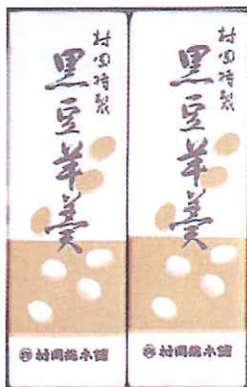 村岡特製
黒豆羊羹
村岡総本舗
村岡特製
黒豆羊羹
村岡総本舗